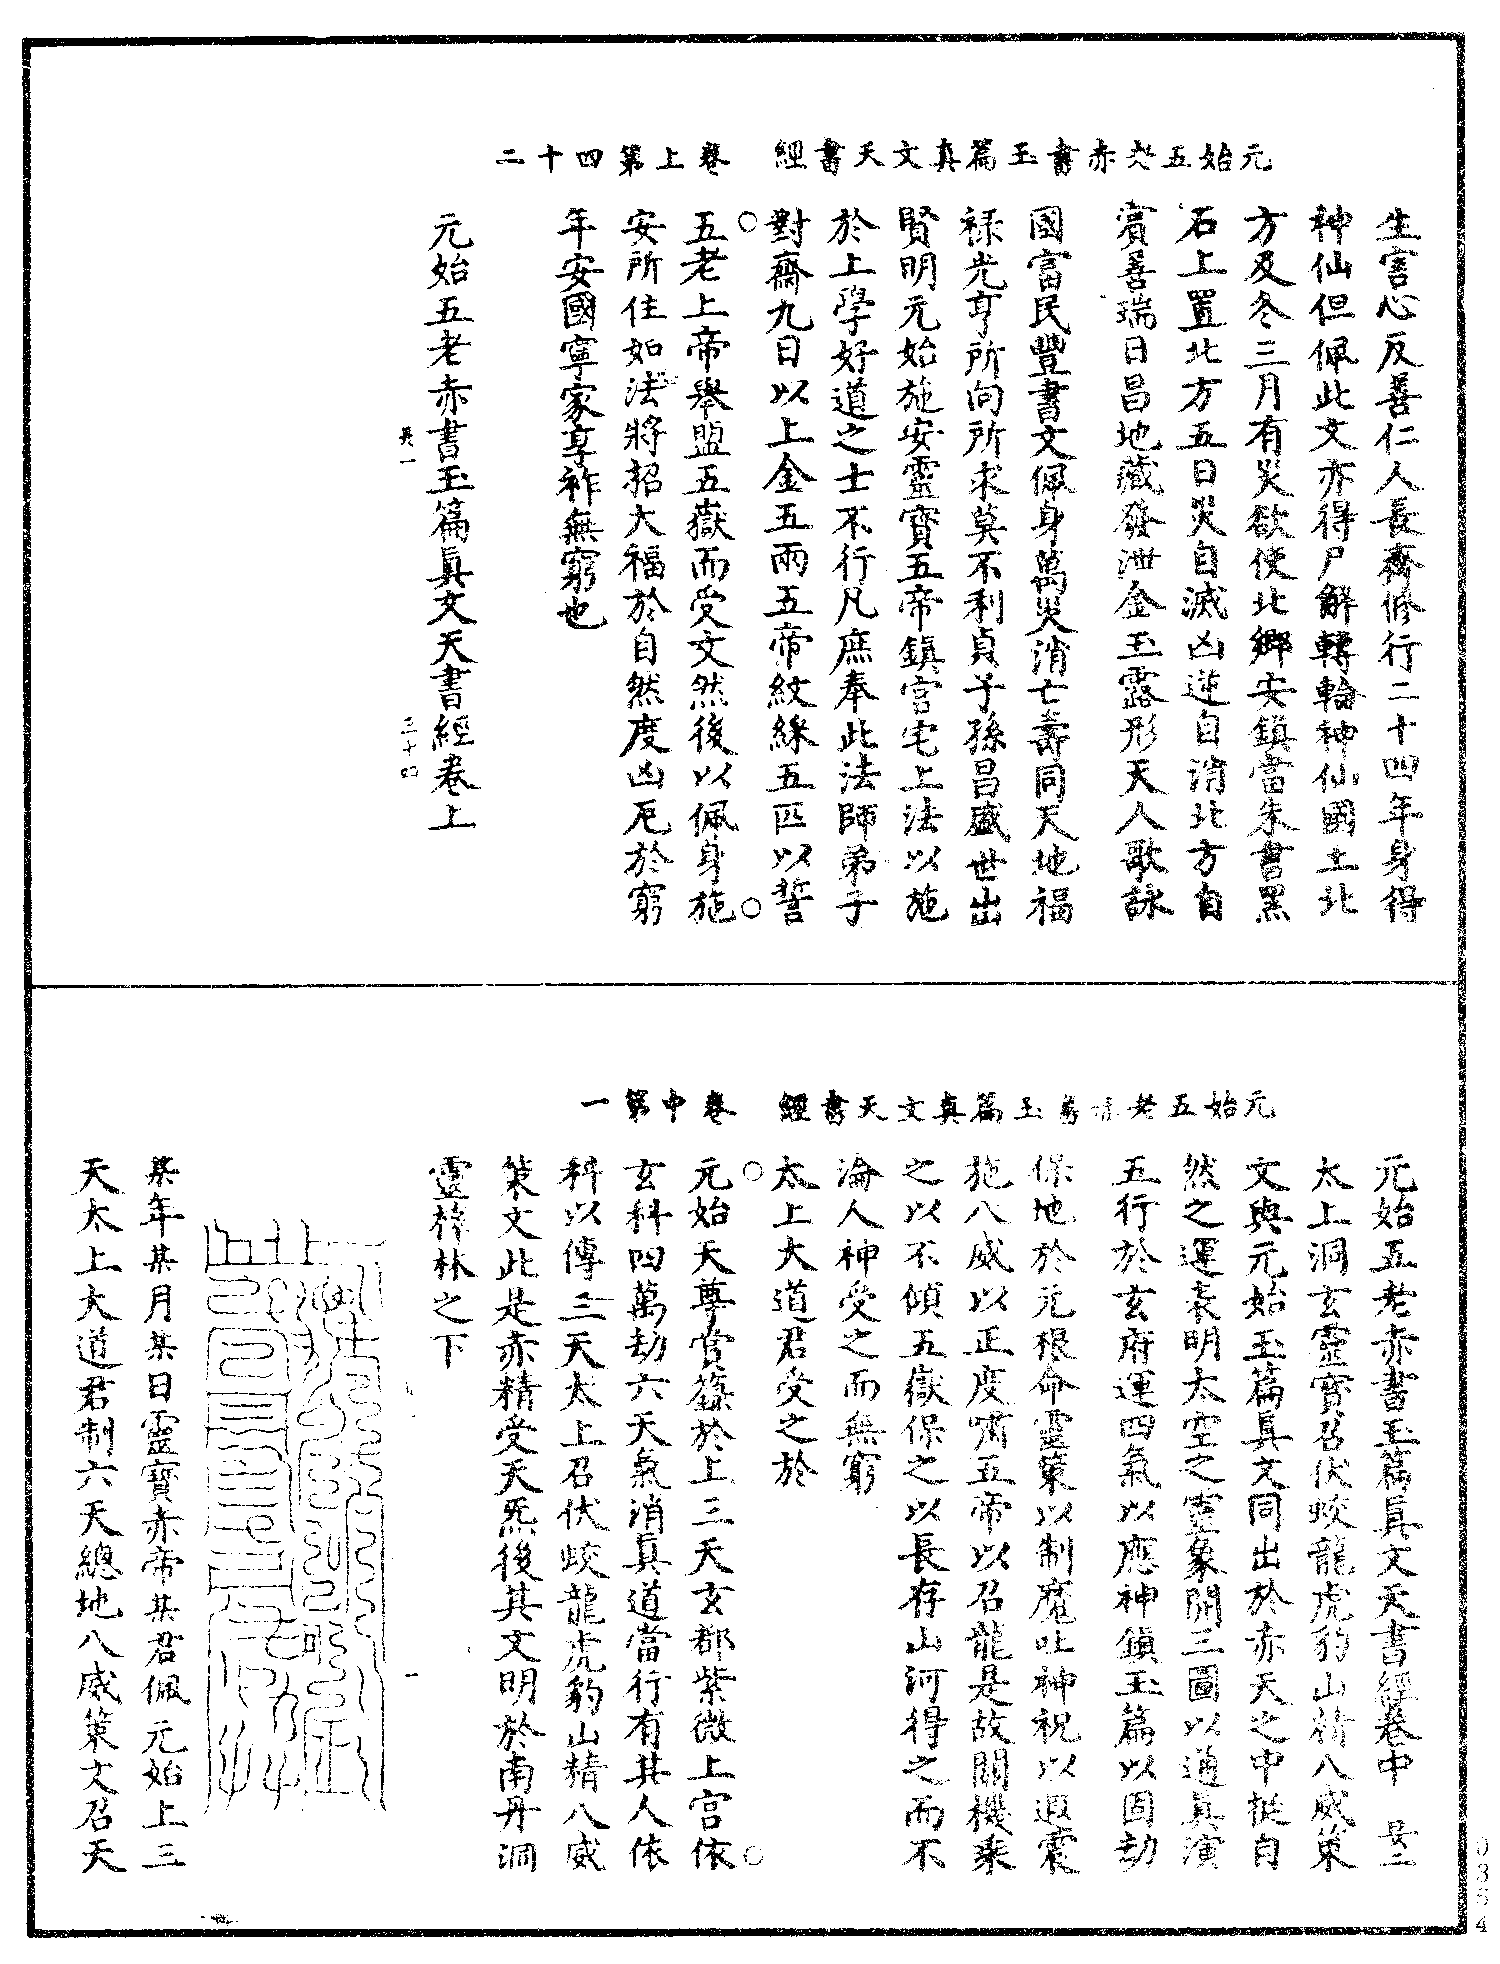 元始五老赤書玉篇真文天書經　卷上第四十二
生害心反善仁人長齋修行二十四年身得
神仙但佩此文亦得尸解轉輪神仙國土北
方及冬三月有災欲使北鄉安鎮當朱書黑
石上置北方五日災自滅凶逆自消北方自
賓善瑞日昌地藏發泄金玉露形天人歌詠
國富民豐書文佩身萬災消亡壽同天地福
祿光亨所向所求莫不利貞子孫昌盛世出
賢明元始施安靈寶五帝鎮宮宅上法以施
於上學好道之士不行凡庶奉此法師弟子
對齋九日以上金五兩五帝紋綵五匹以誓
五老上帝舉盟五嶽而受文然後以佩身施
安所住如法將招大福於自然度凶厄於窮
年安國寧家享祚無窮也
元始五老赤書玉篇真文天書經卷上
三十四
元始五老赤書玉篇真文天書經　卷中第一
元始五老赤書玉篇真文天書經卷中
太上洞玄靈寶召伏蛟龍虎豹山精八威策
文與元始玉篇真文同出於赤天之中挺自
然之運表明太空之靈象開三圖以通真演
五行於玄府運四氣以應神鎮玉篇以固劫
保地於元根命靈策以制魔吐神祝以遐震
施八威以正度嘯五帝以召龍是故關機乘
之以不傾五嶽保之以長存山河得之而不
淪人神受之而無窮
太上大道君受之於
元始天尊賞籙於上三天玄都紫微上宮依
玄科四萬劫六天氣消真道當行有其人依
科以傳三天太上召伏蛟龍虎豹山精八威
策文此是赤精受天炁後其文明於南丹洞
靈梓林之下
一
某年某月某日靈寶赤帝某君佩元始上三
天太上大道君制六天總地八威策文召天
0384